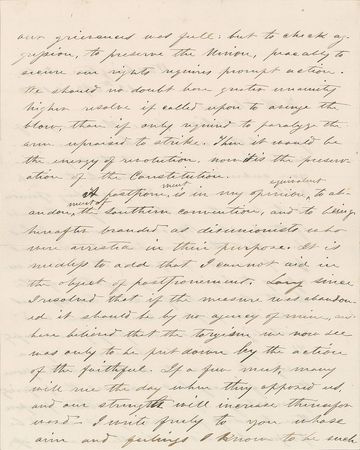 our grievances was full: but to check ag-
gression, to preserve the Union, peacably to
secure our rights requires prompt action.
We should no doubt have greater unanimity
higher resolve if called upon to avenge the
blow, than if only required to paralyze the
arm upraised to strike. Then it would be
the energy of revolution, now tis the preserv-
ation of the Constitution.
ment equivalent
A postpone, is in my opinion, to ab-
ment of
andon, the southern convention, and to being
hereafter branded as disunionists who
were arrested in their purpose. It is
needless to add that I cannot aid in
the object of postponement. Long since
I resolved that if the measure was abandon-
ed it should be by no agency of mine, and
have believed that the toryism we now see
was only to be put down by the action
of the faithful. If a few meet, many
will rue the day when they opposed us,
and our strength will increase thencefor
ward - I write freely to you whose
aim and feelings I know to be such